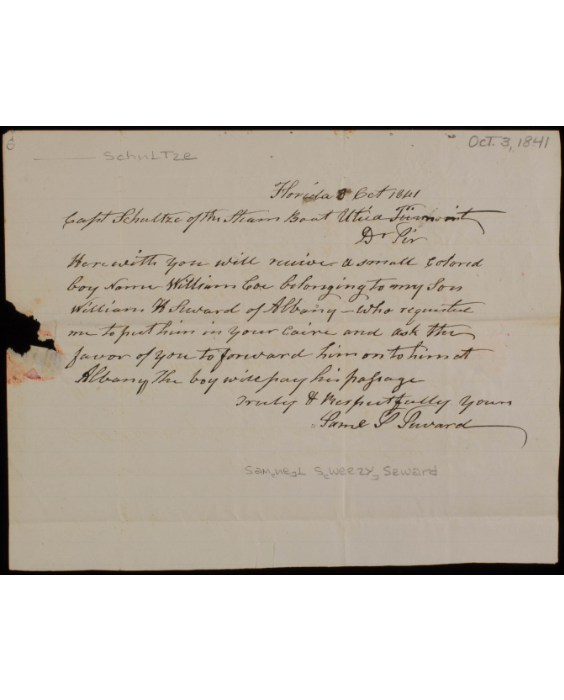 Oct. 3, 1841
Schultze
Florida 3 Oct 1841
Capt Schultze of the Steam Boat Utica
Dr Sir
Herewith you will recive a small Colored
boy Name William Coe belonging to my Son
William H Seward of Albany - who requested
me to put him in your caire and ask the
favor of you to forward him on to him at
Albany The boy will pay his passage
Truly & Respectfully Yours
Saml S Seward
Samuel Sweezy Seward